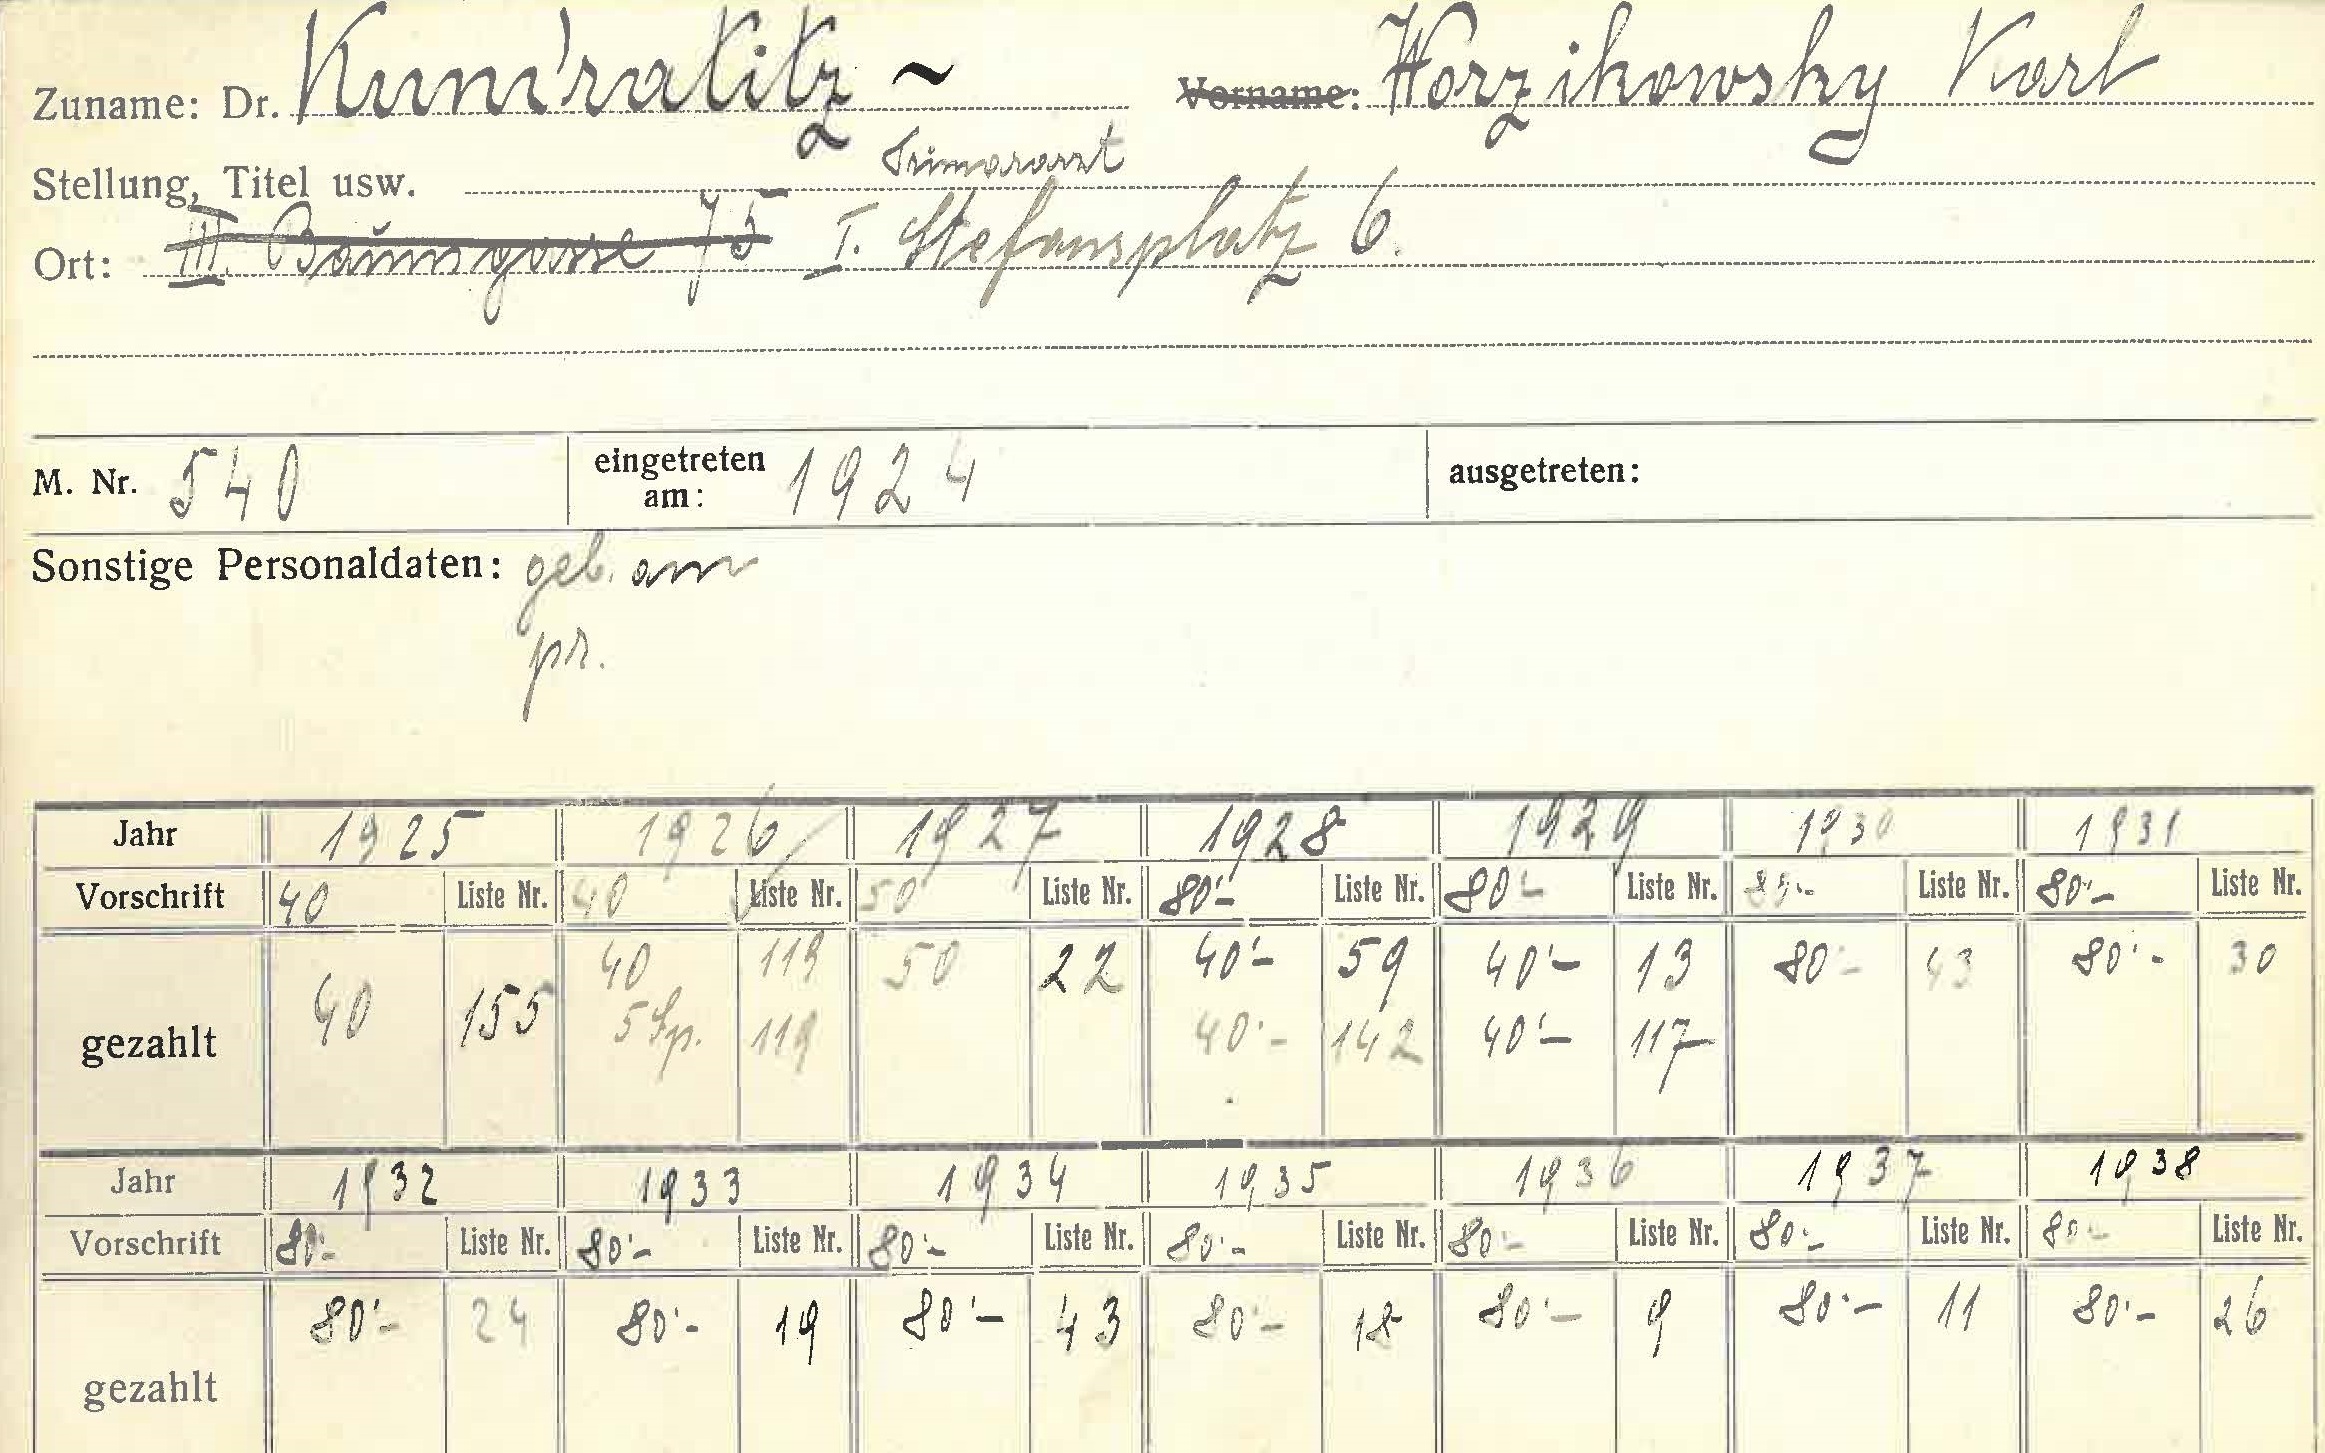 Zuname: Dr. Kundratitz ~ Vorname: Worzikowsky Karl
Stellung, Titel usw. Primararzt
Ort: III. Baumgasse 75 I. Stefansplatz 6.
M. Nr. 540 eingetreten am: 1924 ausgetreten:
Sonstige Personaldaten: geb. am
pr.
Jahr 1925 1926 1927 1928 1929 1930 1931
Vorschrift 40 Liste Nr. 40 Liste Nr. 50 Liste Nr. 80'- Liste Nr. 80'- Liste Nr. 80'- Liste Nr. 80'- Liste Nr.
gezahlt 40 155 40 119 50 22 40'- 59 40'- 13 80'- 43 80'- 30
5 Sp. 119 40'- 142 40'- 117
Jahr 1932 1933 1934 1935 1936 1937 1938
Vorschrift 80'- Liste Nr. 80'- Liste Nr. 80'- Liste Nr. 80'- Liste Nr. 80'- Liste Nr. 80'- Liste Nr. 80'- Liste Nr.
gezahlt 80'- 24 80'- 19 80'- 43 80'- 18 80'- 9 80'- 11 80'- 26